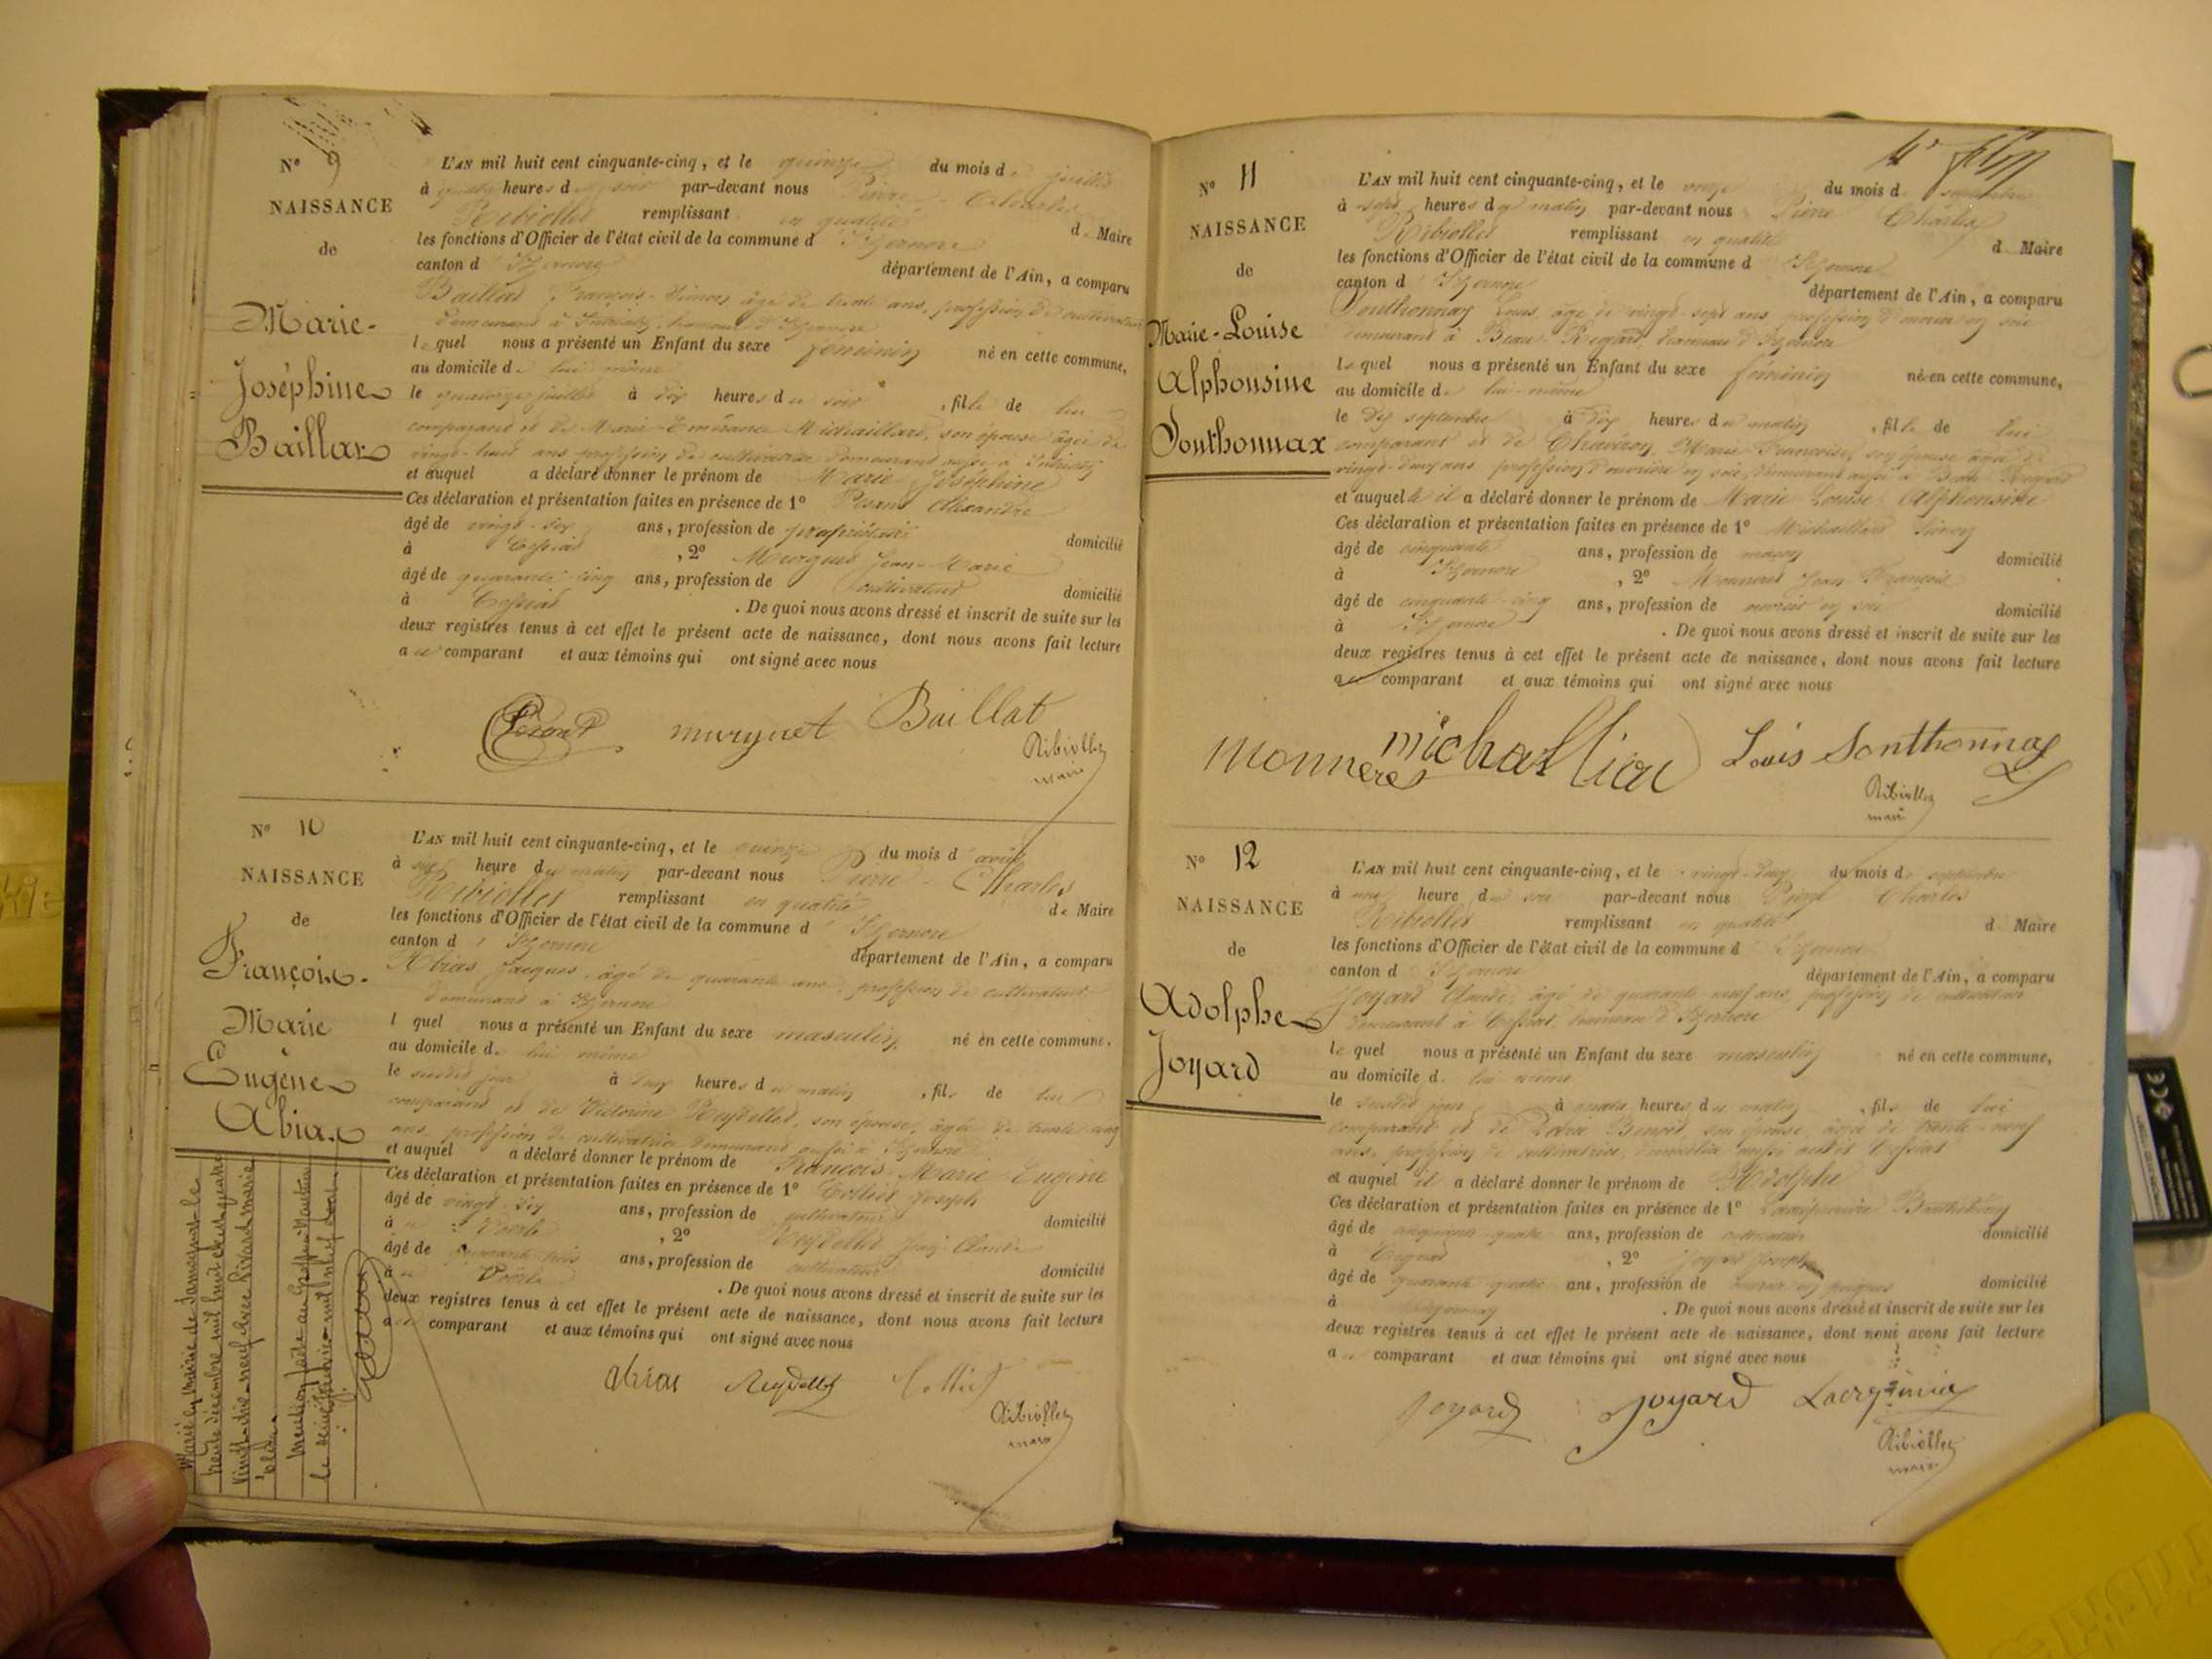 N° 9
NAISSANCE
de
Marie-
Joséphine
Baillat
L'AN mil huit cent cinquante-cinq, et le quinze du mois de juillet
à heures du soir par-devant nous Pierre-Charles
Ribiollet remplissant en qualité de Maire
les fonctions d'Officier de l'état civil de la commune d'Izernore
canton d'Izernore département de l'Ain, a comparu
Baillat François-Simon âgé de trente ans, profession de cultivateur
demeurant à hameau d'Izernore
lequel nous a présenté un Enfant du sexe féminin né en cette commune,
au domicile de lui même
le quatorze juillet à dix heures du soir, fille de lui
comparant et de Marie Emérance Michaillard, son épouse âgée de
vingt-huit ans profession de cultivatrice demeurant aussi à
et auquel a déclaré donner le prénom de Marie Joséphine
Ces déclaration et présentation faites en présence de 1° Alexandre
âgé de vingt-six ans, profession de propriétaire domicilié
à Cessiat, 2° Murguet Jean-Marie
âgé de quarante-cinq ans, profession de cultivateur domicilié
à Cessiat. De quoi nous avons dressé et inscrit de suite sur les
deux registres tenus à cet effet le présent acte de naissance, dont nous avons fait lecture
au comparant et aux témoins qui ont signé avec nous
murguet Baillat
Ribiollet
maire
N° 10
NAISSANCE
de
François-
Marie
Eugène
Abia
L'AN mil huit cent cinquante-cinq, et le quinze du mois d'août
à six heure du matin par-devant nous Pierre-Charles
Ribiollet remplissant en qualité de Maire
les fonctions d'Officier de l'état civil de la commune d'Izernore
canton d'Izernore département de l'Ain, a comparu
Abias Jacques, âgé de quarante ans, profession de cultivateur
demeurant à Izernore
lequel nous a présenté un Enfant du sexe masculin né en cette commune,
au domicile de lui même
le susdit jour à deux heures du matin, fils de lui
comparant et de Victorine Reydellet, son épouse, âgée de trente-cinq
ans, profession de cultivatrice demeurant aussi à Izernore
et auquel a déclaré donner le prénom de François-Marie-Eugène
Ces déclaration et présentation faites en présence de 1° Collet Joseph
âgé de vingt-six ans, profession de cultivateur domicilié
à Voërle, 2° Reydellet Jean-Claude
âgé de ans, profession de cultivateur domicilié
à Voërle. De quoi nous avons dressé et inscrit de suite sur les
deux registres tenus à cet effet le présent acte de naissance, dont nous avons fait lecture
au comparant et aux témoins qui ont signé avec nous
abias Reydellet
Ribiollet
maire
Marié en mairie de le
trente décembre mil huit cent quatre
vingt-dix-neuf avec Marie
Mention faite au Greffe
le mil neuf cent
N° 11
NAISSANCE
de
Marie-Louise
Alphonsine
Sonthonnax
L'AN mil huit cent cinquante-cinq, et le onze du mois de septembre
à sept heures du matin par-devant nous Pierre Charles
Ribiollet remplissant en qualité de Maire
les fonctions d'Officier de l'état civil de la commune d'Izernore
canton d'Izernore département de l'Ain, a comparu
Sonthonnax Louis, âgé de vingt-sept ans, profession d'ouvrier en soie
demeurant à Beau-Regard hameau d'Izernore
lequel nous a présenté un Enfant du sexe féminin né en cette commune,
au domicile de lui-même
le dix septembre à dix heures du matin, fille de lui
comparant et de Marie-Françoise, son épouse âgée de
vingt-deux ans profession d'ouvrière en soie, demeurant aussi à Beau-Regard
et auquel il a déclaré donner le prénom de Marie-Louise-Alphonsine
Ces déclaration et présentation faites en présence de 1° Michaillard Simon
âgé de cinquante ans, profession de maçon domicilié
à Izernore, 2° Monneret Jean-François
âgé de cinquante-cinq ans, profession de ouvrier en soie domicilié
à Izernore. De quoi nous avons dressé et inscrit de suite sur les
deux registres tenus à cet effet le présent acte de naissance, dont nous avons fait lecture
au comparant et aux témoins qui ont signé avec nous
Louis Sonthonnax
Ribiollet
maire
N° 12
NAISSANCE
de
Adolphe
Joyard
L'AN mil huit cent cinquante-cinq, et le vingt-deux du mois de septembre
à une heure du soir par-devant nous Pierre Charles
Ribiollet remplissant en qualité de Maire
les fonctions d'Officier de l'état civil de la commune d'Izernore
canton d'Izernore département de l'Ain, a comparu
Joyard Claude, âgé de quarante-neuf ans, profession de cultivateur
demeurant à Cessiat, hameau d'Izernore
lequel nous a présenté un Enfant du sexe masculin né en cette commune,
au domicile de lui même
le susdit jour à quatre heures du matin, fils de lui
comparant et de Benoît, son épouse, âgée de trente-neuf
ans, profession de cultivatrice, Cessiat
et auquel il a déclaré donner le prénom de Adolphe
Ces déclaration et présentation faites en présence de 1°
âgé de cinquante-quatre ans, profession de cultivateur domicilié
à, 2° Joyard Joseph
âgé de quarante-quatre ans, profession de domicilié
à. De quoi nous avons dressé et inscrit de suite sur les
deux registres tenus à cet effet le présent acte de naissance, dont nous avons fait lecture
au comparant et aux témoins qui ont signé avec nous
Joyard Joyard
Ribiollet
maire